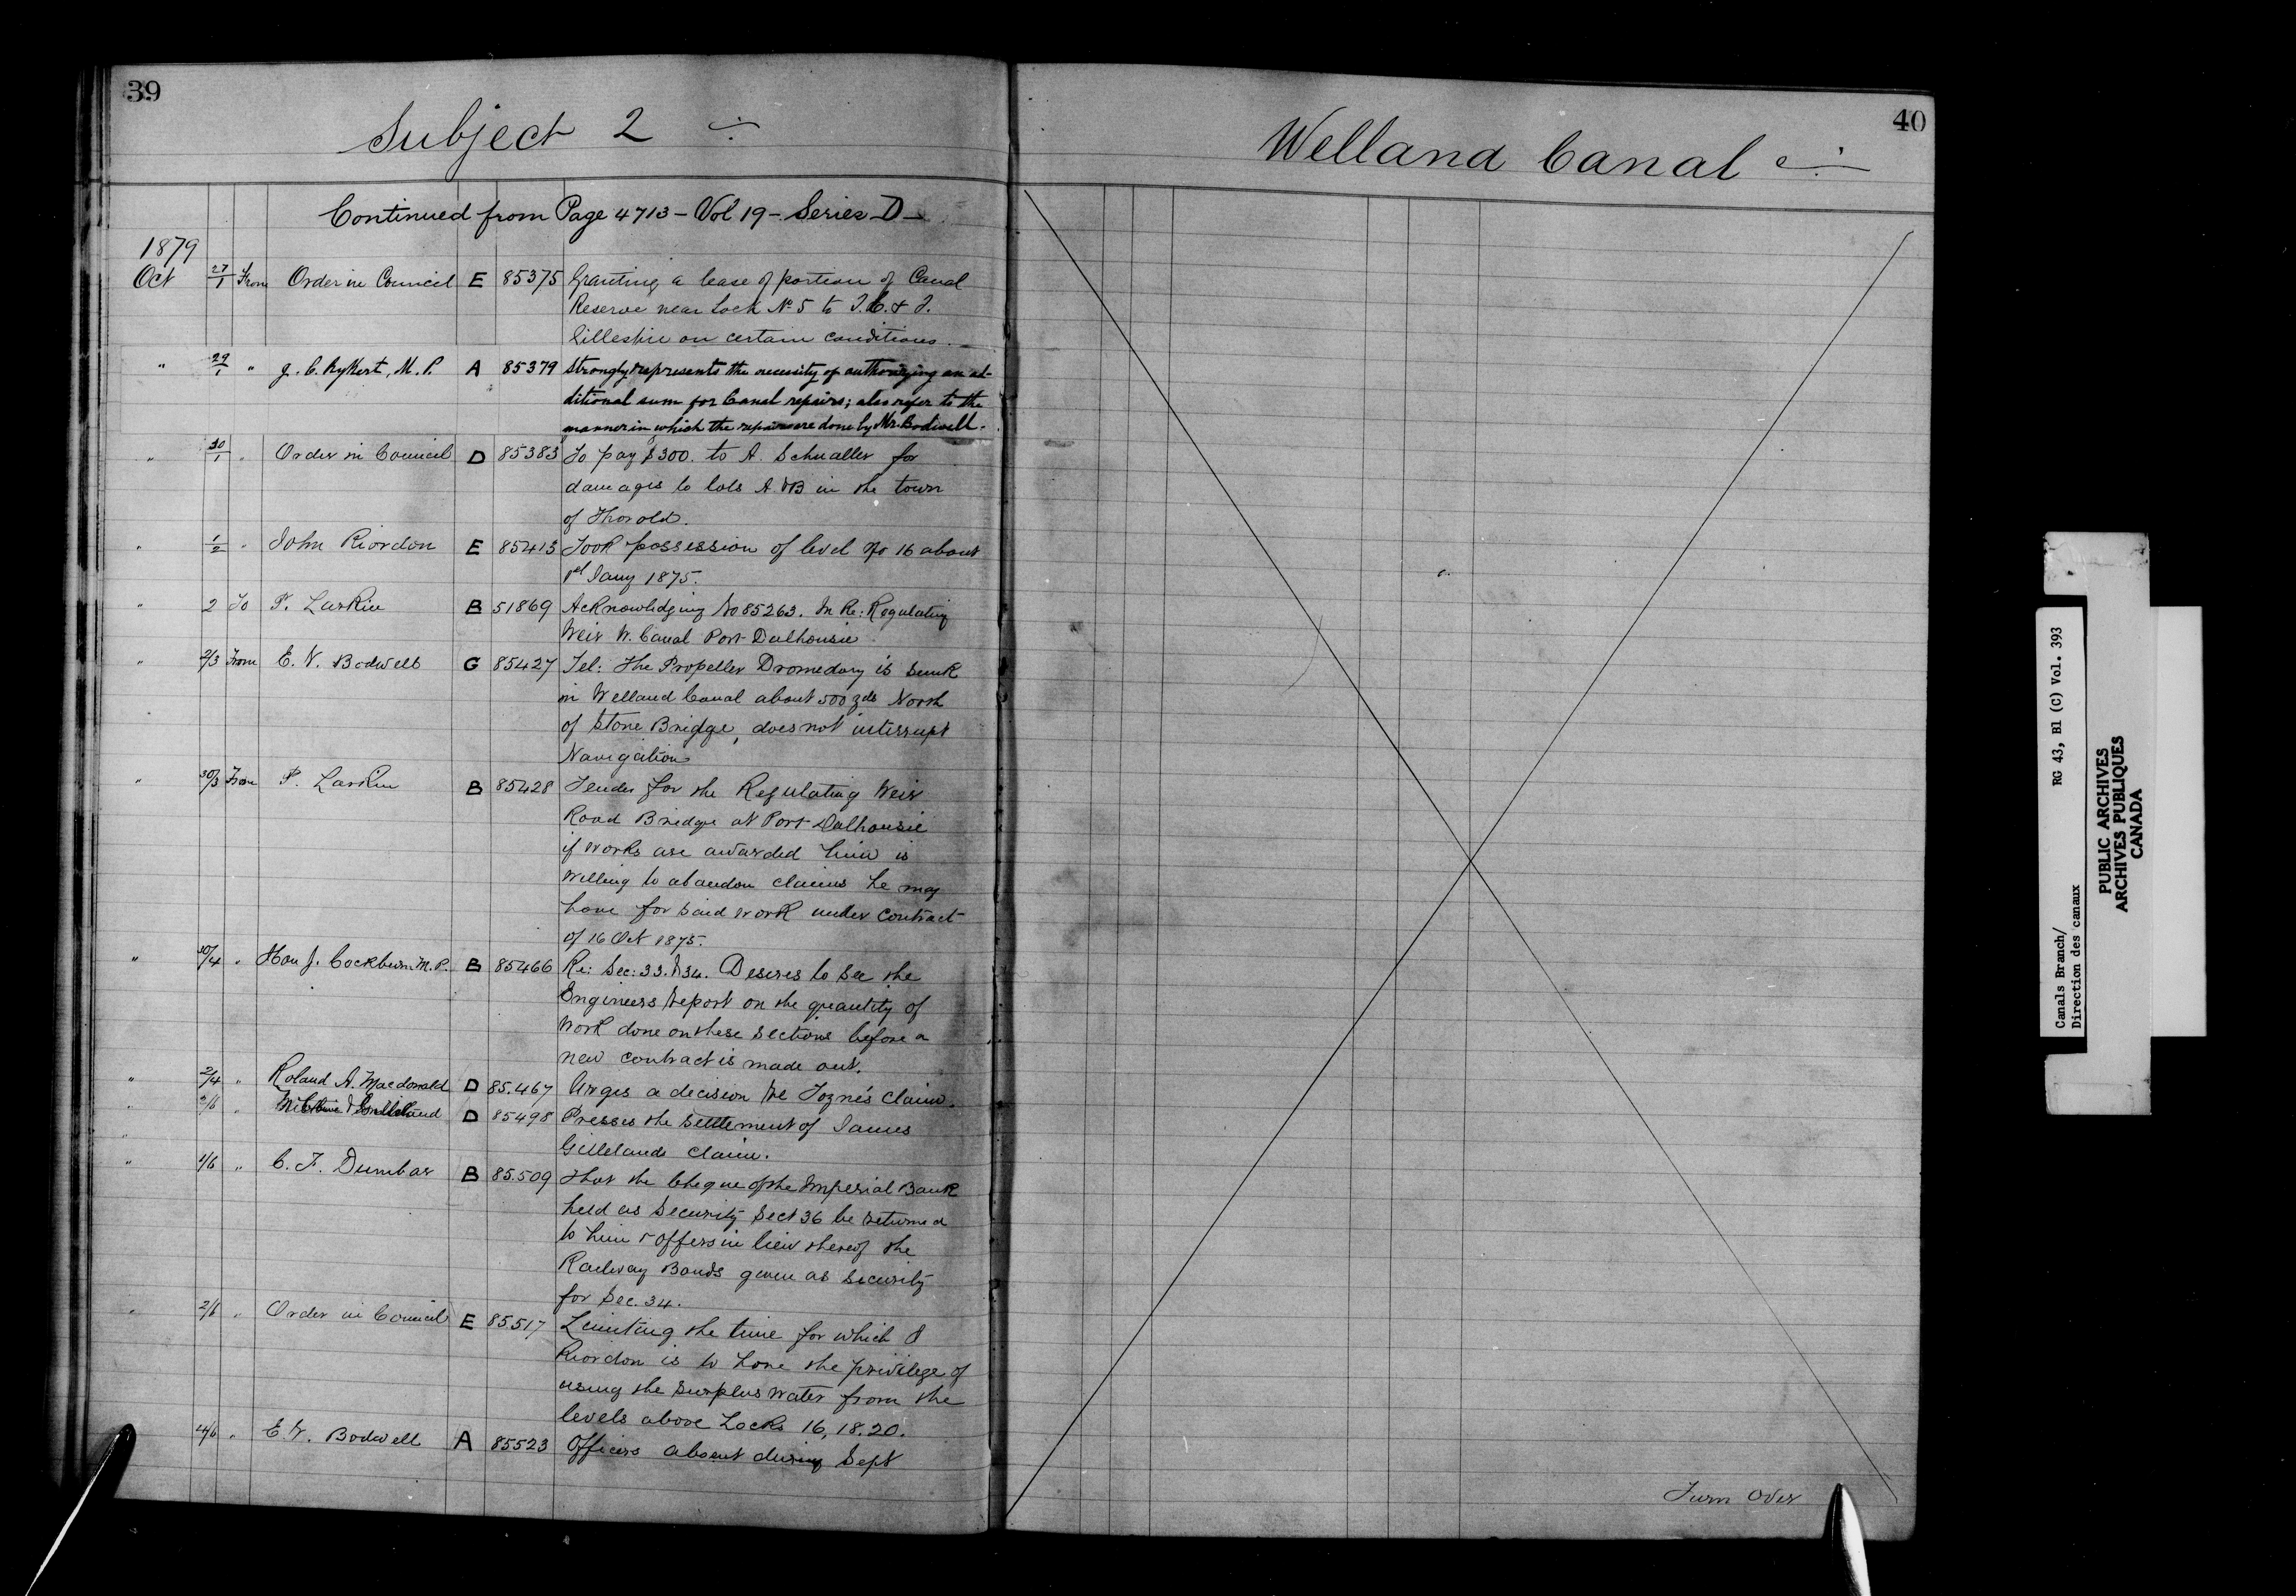 39
Subject 2
Continued from Page 4713 – Vol 19 – Series D –
1879
Oct 27/1 From Order in Council E 85375 Granting a lease of portion of Canal
Reserve near Lock No 5 to
Gillespie on certain conditions.
" 29/1 " J. C. Rykert, M.P. A 85379 Strongly represents the necessity of authorizing an ad-
ditional sum for Canal repairs; also refer to the
manner in which the repairs are done by Mr. Bodwell.
" 30/1 " Order in Council D 85383 To pay $300. to A. Schualler for
damages to lots A. & B in the town
of Thorold.
" 1/2 " John Riordon E 85413 Took possession of level No 16 about
1st Jany 1875.
" 2 To P. Larkin B 51869 Acknowledging No 85263. In Re: Regulating
Weir W. Canal Port Dalhousie
" 2/3 From E. V. Bodwell G 85427 Tel: The Propeller Dromedary is sunk
in Welland Canal about 500 yds North
of Stone Bridge, does not interrupt
Navigation
" 30/3 From P. Larkin B 85428 Tender for the Regulating Weir
Road Bridge at Port Dalhousie
if works are awarded him is
willing to abandon claims he may
have for said work under contract
of 16 Oct 1875.
" 30/4 " Hon J. Cockburn M.P. B 85466 Re: Sec: 33. & 34. Desires to see the
Engineers report on the quantity of
work done on these sections before a
new contract is made out.
" 2/4 " Roland A. Macdonald D 85.467 Urges a decision re claim.
" " D 85498 Presses the settlement of James
Gillelands claim.
" 1/6 " C. F. Dunbar B 85.509 That the cheque of the Imperial Bank
held as security Sect 36 be returned
to him & offers in lieu thereof the
Railway Bonds given as security
for Sec. 34.
" 2/6 " Order in Council E 85517 Limiting the time for which J
Riordon is to have the privilege of
using the surplus water from the
levels above Locks 16, 18. 20.
4/6 " E. V. Bodwell A 85523 Officers absent during Sept
40
Welland Canal
Turn Over
Canals Branch/
Direction des canaux
RG 43, B1 (C) Vol. 393
PUBLIC ARCHIVES
ARCHIVES PUBLIQUES
CANADA